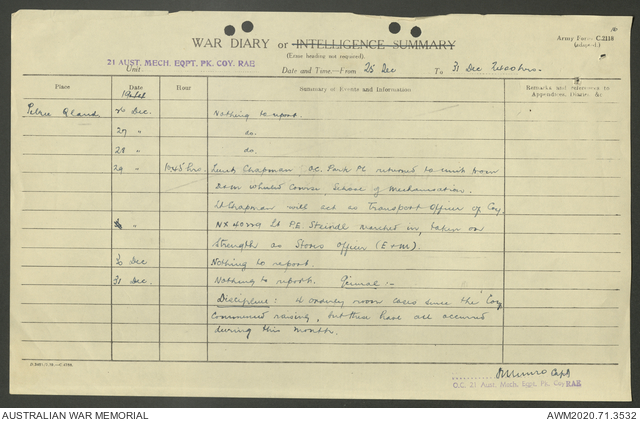 Army Form C.2118
(adapted.)
WAR DIARY or INTELLIGENCE SUMMARY
(Erase heading not required).
21 AUST. MECH. EQPT. PK. COY. RAE
Unit
Date and Time—From 25 Dec To 31 Dec
Place Date Hour Summary of Events and Information Remarks and references to Appendices, Diaries, &c.
26 Dec. Nothing to report
27 " do.
28 " do.
29 " Lieut Chapman O.C. Park Pl returned to unit from
Wheeled Course, School of Mechanisation.
Lt Chapman will act as Transport Officer of Coy.
Lt P.E. Steindl marched in, taken on
Strength as Stores Officer (E+M).
30 Dec Nothing to report.
31 Dec. Nothing to report. General :-
Discipline: 4 orderly room cases since the Coy
Commenced raising, but these have all occurred
during this month.
Munro Capt
O.C. 21 Aust. Mech. Eqpt. Pk. Coy RAE
AUSTRALIAN WAR MEMORIAL AWM2020.71.3532